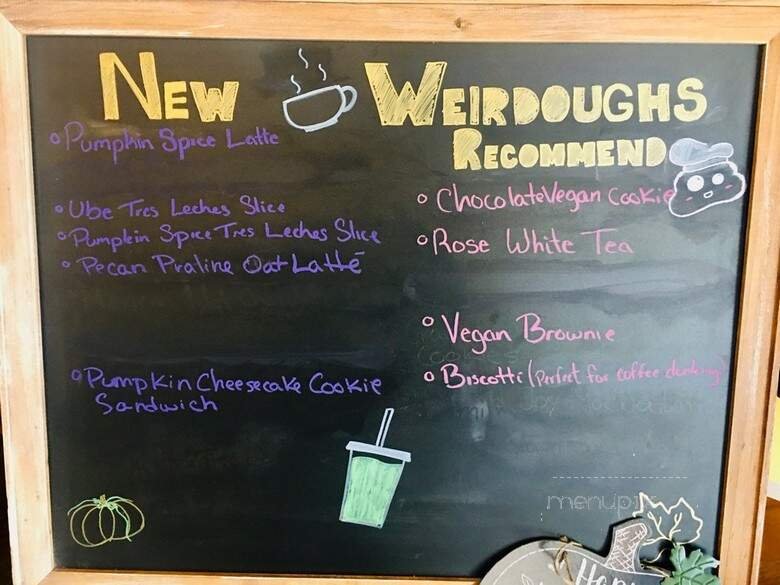 New
Pumpkin Spice Latte
Ube Tres Leches Slice
Pumpkin Spice Tres Leches Slice
Pecan Praline Oat Latté
Pumpkin Cheesecake Cookie
Sandwich
WEIRDOUGHS
RECOMMEND
Chocolate Vegan Cookie
Rose White Tea
Vegan Brownie
Biscotti (Perfect for coffee dunking)
menupix